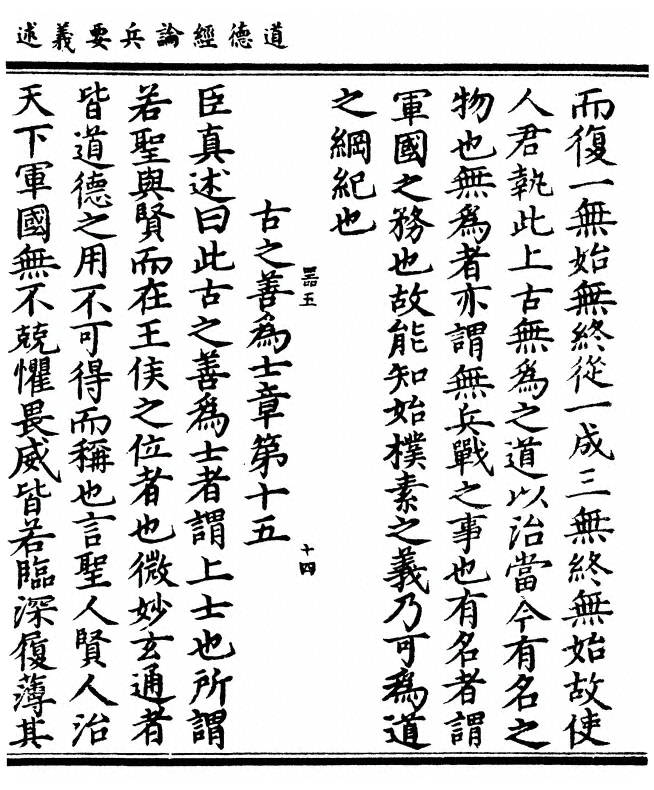 道德經論兵要義述
而復一無始無終從一成三無終無始故使
人君執此上古無爲之道以治當今有名之
物也無爲者亦謂無兵戰之事也有名者謂
軍國之務也故能知始樸素之義乃可爲道
之綱紀也
五 十四
古之善爲士章第十五
臣真述曰此古之善爲士者謂上士也所謂
若聖與賢而在王侯之位者也微妙玄通者
皆道德之用不可得而稱也言聖人賢人治
天下軍國無不兢懼畏威皆若臨深履薄其